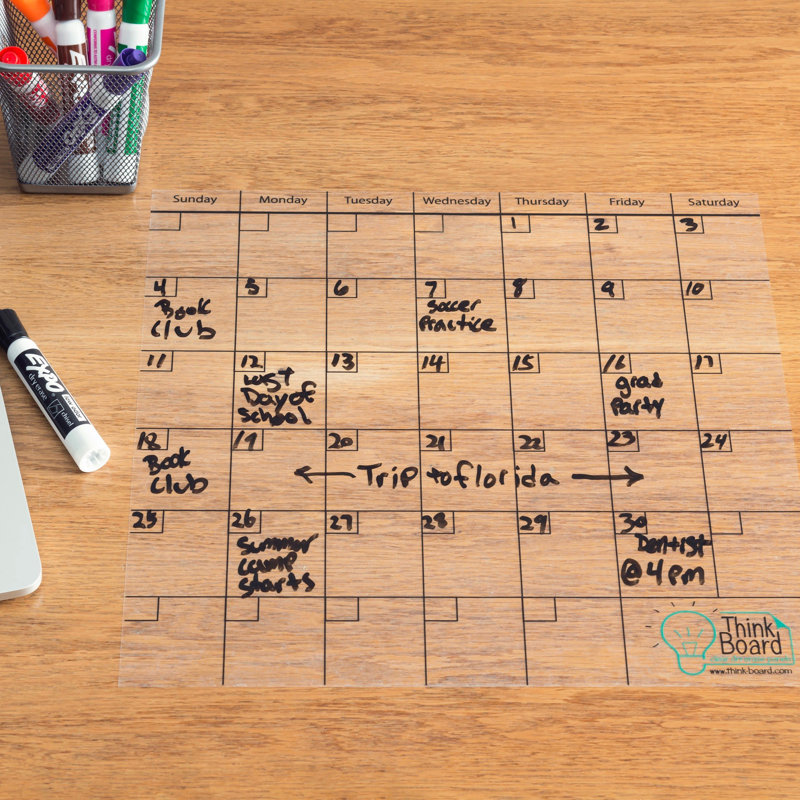 Sunday Monday Tuesday Wednesday Thursday Friday Saturday
1 2 3
4 5 6 7 8 9 10
Book
Club
Soccer
Practice
11 12 13 14 15 16 17
Last
Day of
School
grad
Party
18 19 20 21 22 23 24
Book
Club
Trip to florida
25 26 27 28 29 30
Summer
camp
starts
Dentist
@ 4 pm
Think
Board
www.think-board.com
EXPO
dry erase
chisel